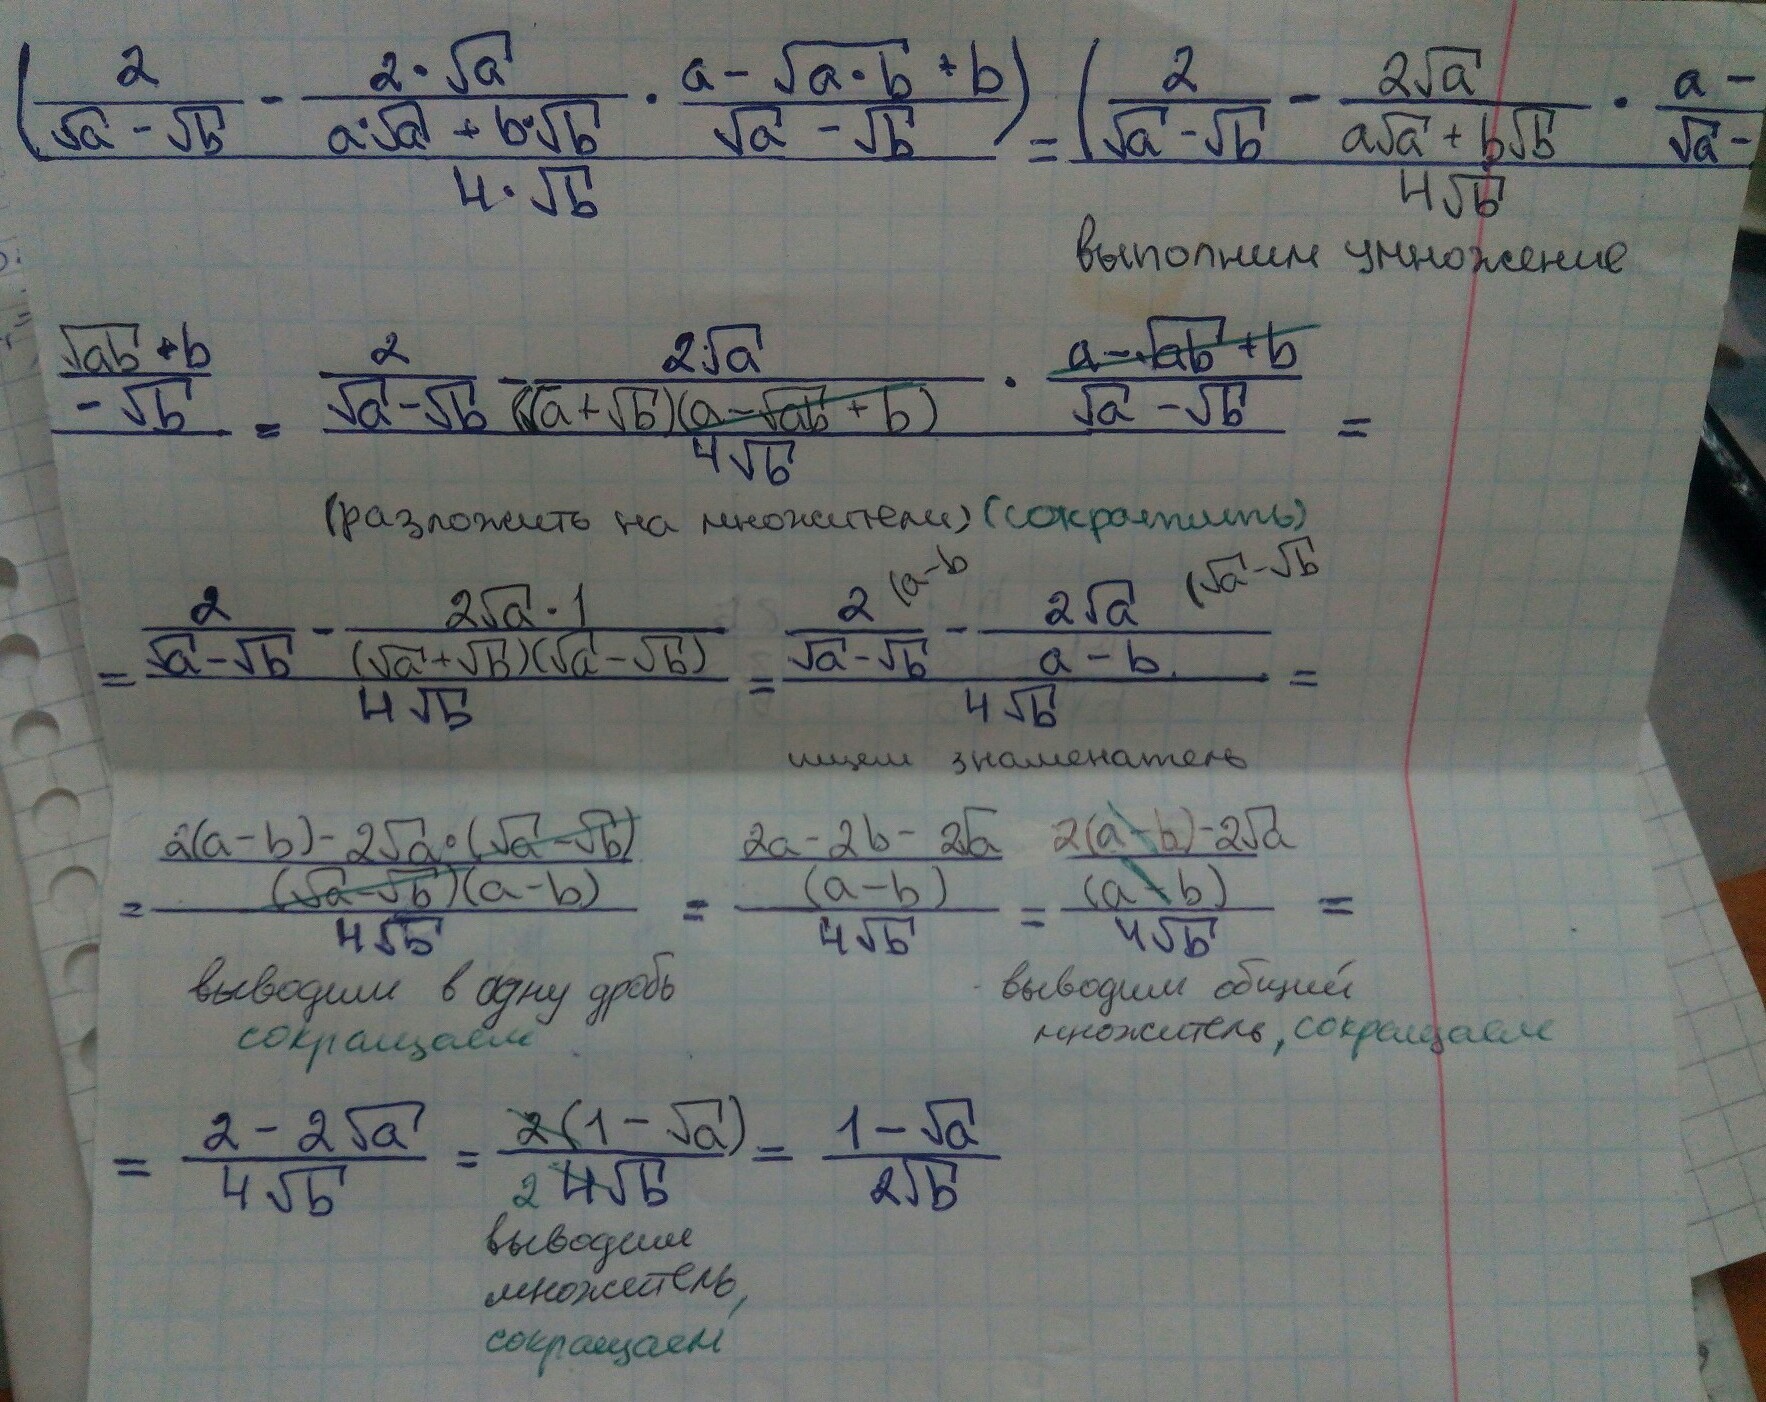 (2/(√a - √b) - (2·√a)/(a·√a + b·√b) · (a - √(a·b) + b)/(√a - √b)) / (4·√b) = (2/(√a - √b) - (2√a)/(a√a + b√b) · (a -)/(√a -) / (4√b)
выполним умножение
(√ab + b)/(- √b) = (2/(√a - √b) - (2√a)/((√a + √b)(a - √ab + b)) · (a - √ab + b)/(√a - √b)) / (4√b) =
(разложить на множители) (сократить)
= (2/(√a - √b) - (2√a·1)/((√a + √b)(√a - √b))) / (4√b) = (2/(√a - √b) (a-b - (2√a)/(a - b) (√a - √b) / (4√b) =
ищем знаменатель
= ((2(a-b) - 2√a·(√a - √b))/((√a - √b)(a-b))) / (4√b) = ((2a - 2b - 2√a)/(a-b)) / (4√b) = ((2(a-b) - 2√a)/(a-b)) / (4√b) =
выводим в одну дробь выводим общий
сокращаем множитель, сокращаем
= (2 - 2√a)/(4√b) = (2(1 - √a))/(2 4√b) = (1 - √a)/(2√b)
выводим
множитель,
сокращаем